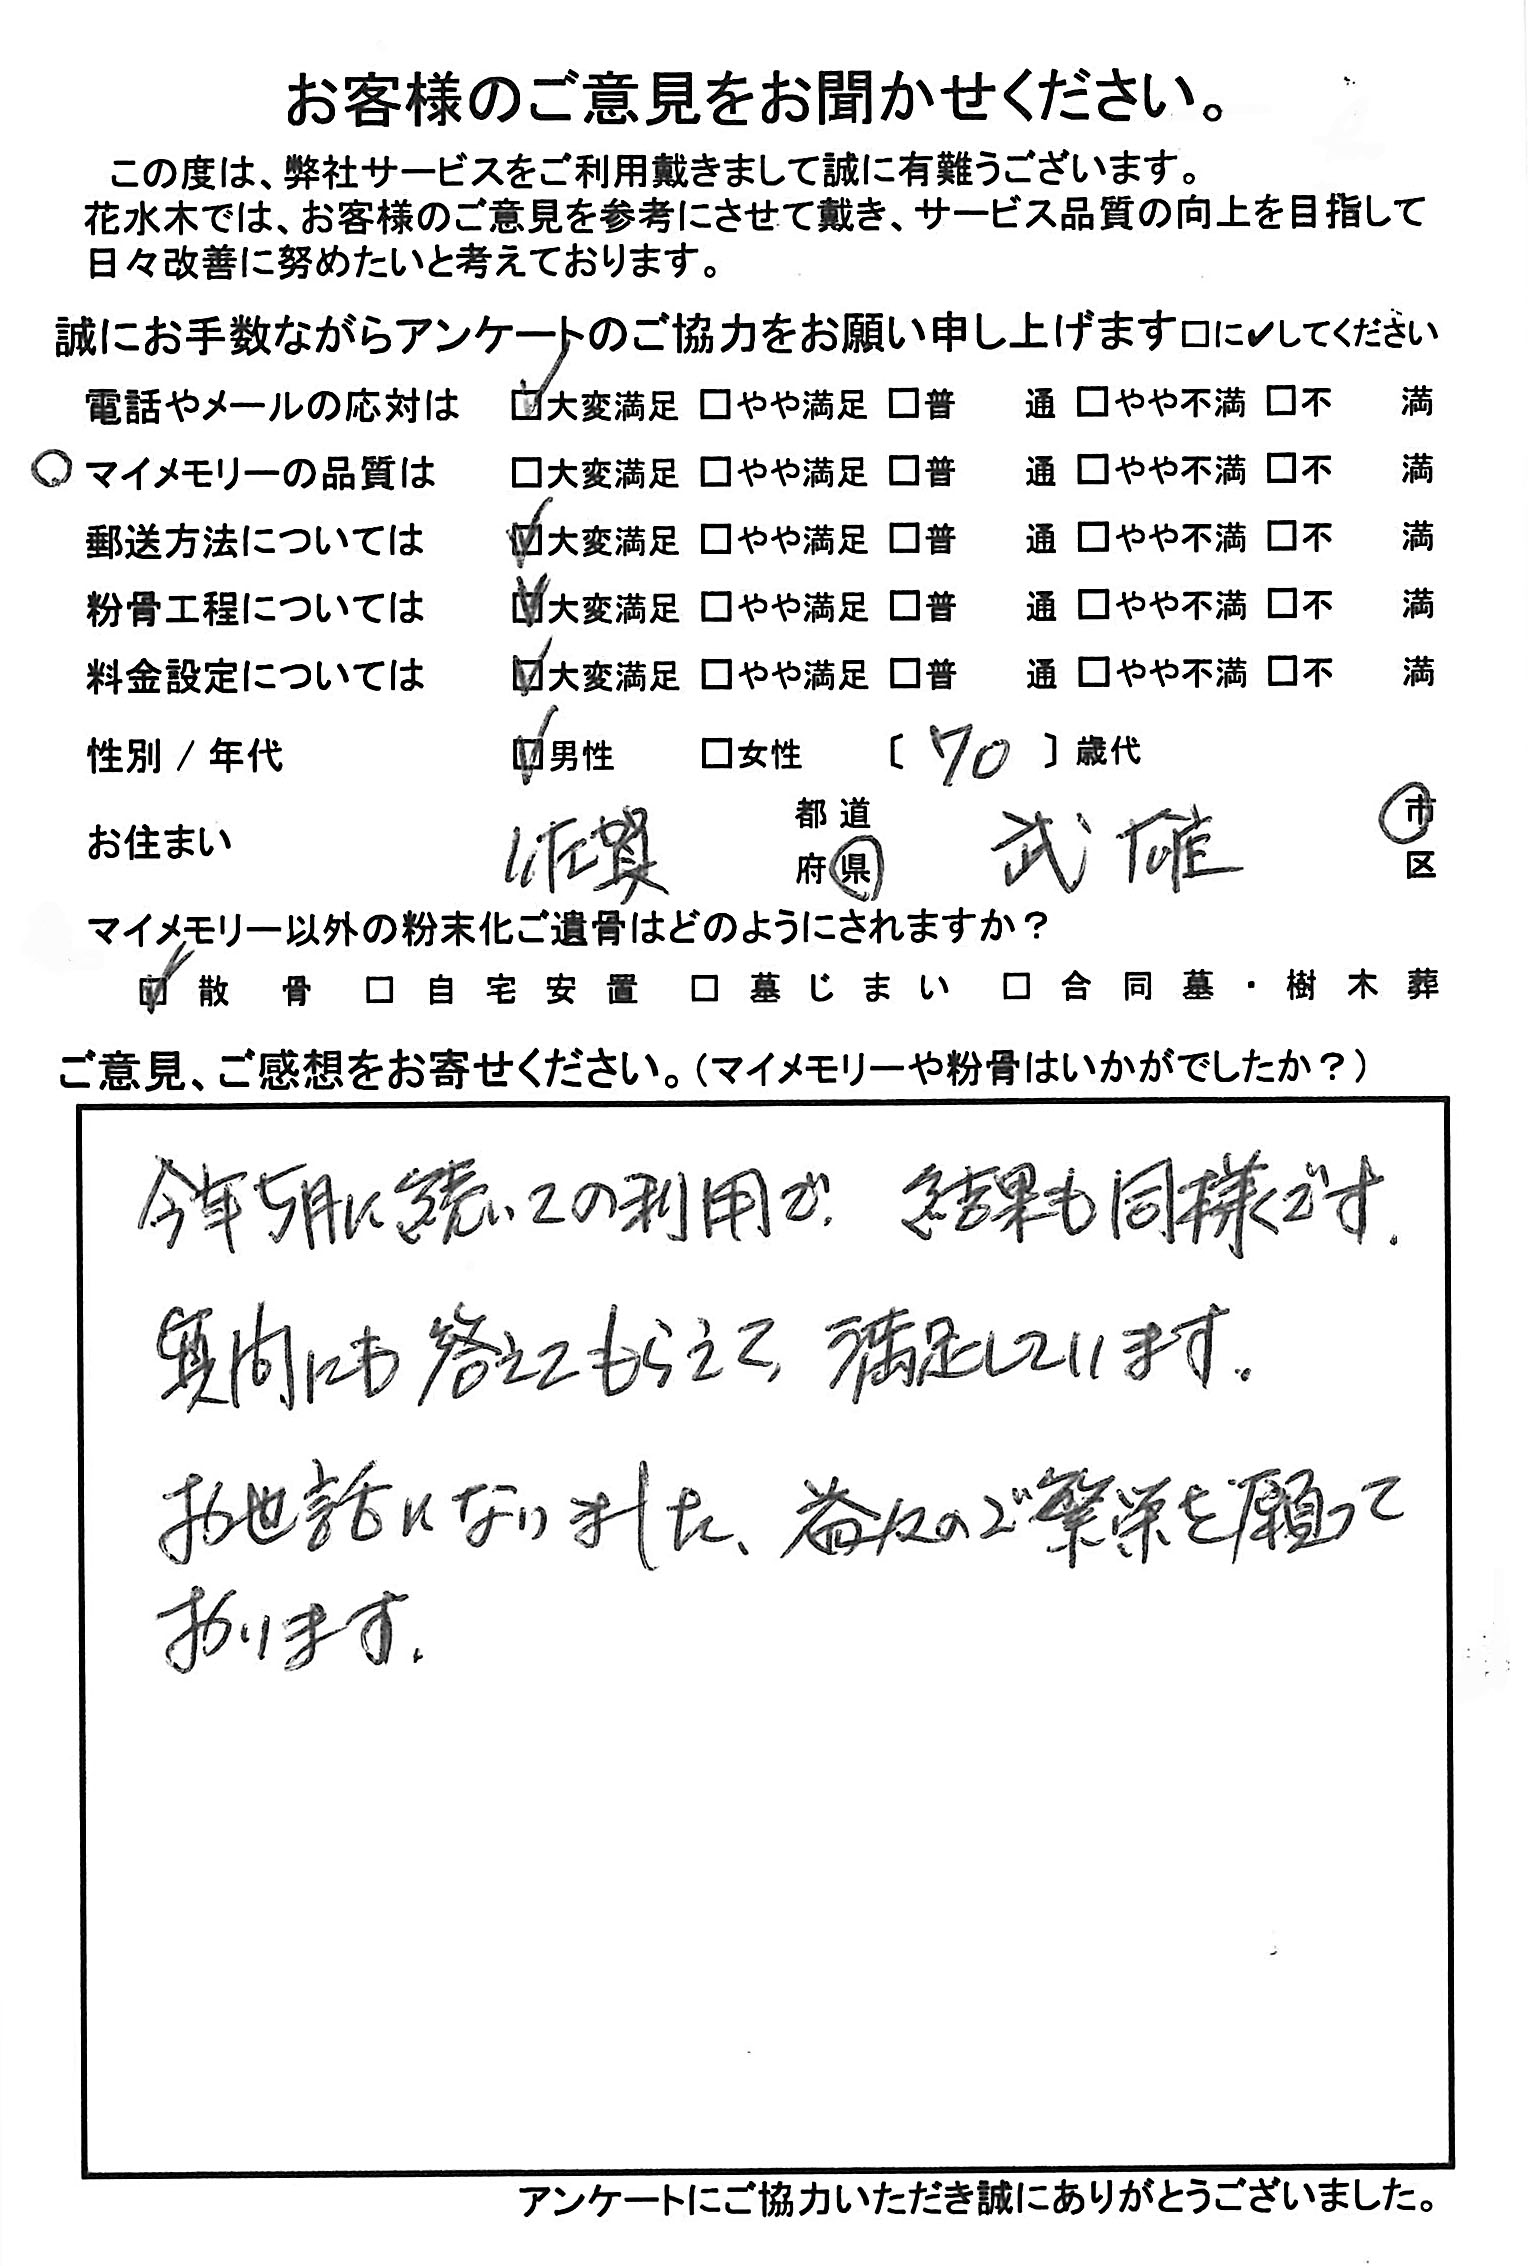 お客様のご意見をお聞かせください。
この度は、弊社サービスをご利用戴きまして誠に有難うございます。
花水木では、お客様のご意見を参考にさせて戴き、サービス品質の向上を目指して
日々改善に努めたいと考えております。
誠にお手数ながらアンケートのご協力をお願い申し上げます□に✔してください
電話やメールの応対は ☑大変満足 □やや満足 □普 通 □やや不満 □不 満
○マイメモリーの品質は □大変満足 □やや満足 □普 通 □やや不満 □不 満
郵送方法については ☑大変満足 □やや満足 □普 通 □やや不満 □不 満
粉骨工程については ☑大変満足 □やや満足 □普 通 □やや不満 □不 満
料金設定については ☑大変満足 □やや満足 □普 通 □やや不満 □不 満
性別 / 年代 ☑男性 □女性 〔 70 〕歳代
お住まい 佐賀 都道府県 武雄 市区
マイメモリー以外の粉末化ご遺骨はどのようにされますか？
☑ 散骨 □ 自宅安置 □ 墓じまい □ 合同墓・樹木葬
ご意見、ご感想をお寄せください。（マイメモリーや粉骨はいかがでしたか？）
今年5月に続いての利用で、結果も同様です。
質問にも答えてもらえて、満足しています。
お世話になりました、益々のご繁栄を願って
おります。
アンケートにご協力いただき誠にありがとうございました。